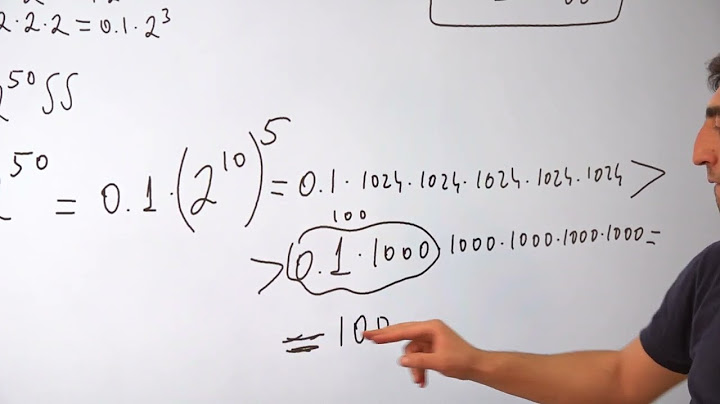 2 · 2 · 2 = 0.1 · 2³
⁵⁰ ∫∫
⁵⁰ = 0.1 · (2¹⁰)⁵ = 0.1 · 1024 · 1024 · 1024 · 1024 · 1024 >
100
> (0.1 · 1000) 1000 · 1000 · 1000 · 1000 =
= 100